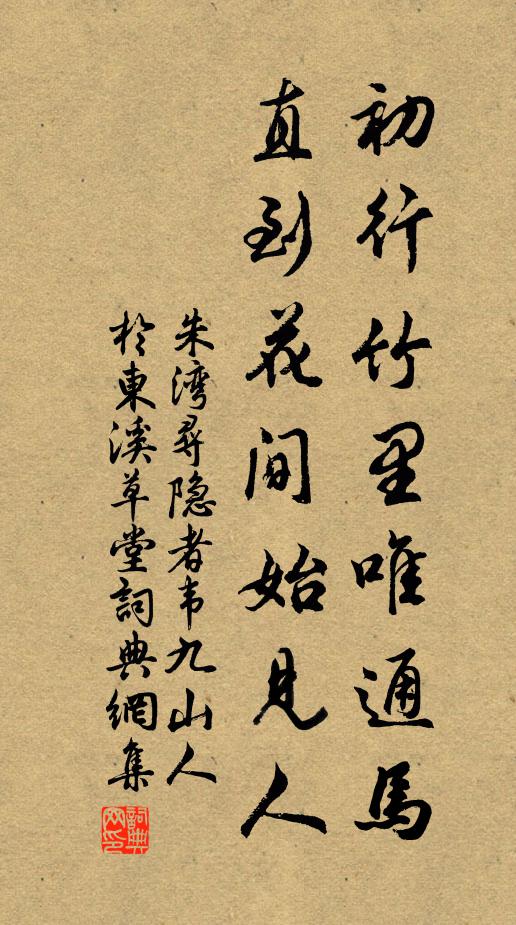 初行竹里唯通馬
直到花间始見人
朱湾尋隐者韦九山人
於東溪草堂詞典網集
詞典网印